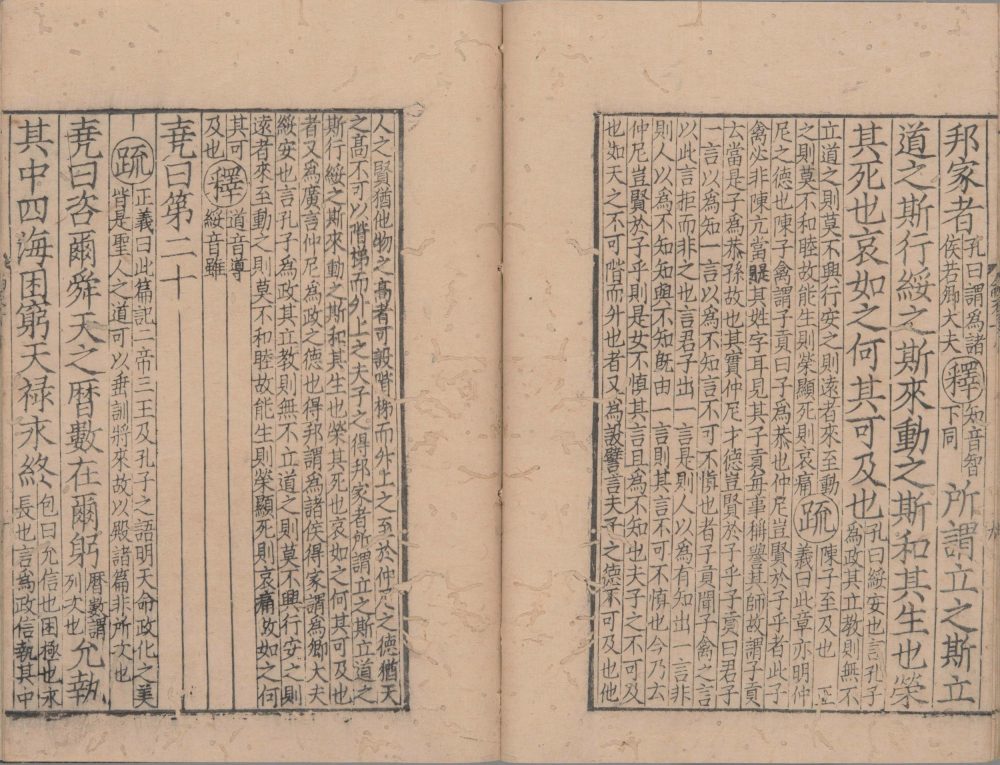 邦家者孔曰謂為諸侯若卿大夫釋知音智下同所謂立之斯立
道之斯行綏之斯來動之斯和其生也榮
其死也哀如之何其可及也孔曰綏安也言孔子為政其立教則無不
立道之則莫不興行安之則遠者來至動之則莫不和睦故能生則榮顯死則哀痛疏陳子至及也正義曰此章亦明仲
尼之德也陳子禽謂子貢曰子為恭也仲尼豈賢於子乎者此子
禽必非陳亢當是其姓字耳見其子貢每事稱譽其師故謂子貢
云當是子為恭孫故也其實仲尼才德豈賢於子乎子貢曰君子
一言以為知一言以為不知言不可不慎也者子貢聞子禽之言
以此言拒而非之也言君子出一言是則人以為有知出一言非
則人以為不知知與不知既由一言則其言不可不慎也今乃云
仲尼豈賢於子乎則是女不慎其言且為不知也夫子之不可及
也如天之不可階而升也者又為設譬言夫子之德不可及也他
人之賢猶他物之高者可設階梯而升上之至於仲尼之德猶天
之高不可以階梯而升上之夫子之得邦家者所謂立之斯立道之
斯行綏之斯來動之斯和其生也榮其死也哀如之何其可及也
者又為廣言仲尼為政之德也得邦謂為諸侯得家謂為卿大夫
綏安也言孔子為政其立教則無不立道之則莫不興行安之則
遠者來至動之則莫不和睦故能生則榮顯死則哀痛故如之何
其可及也釋道音導綏音雖
堯曰第二十
疏正義曰此篇記二帝三王及孔子之語明天命政化之美皆是聖人之道可以垂訓將來故以殿諸篇非所次也
堯曰咨爾舜天之曆數在爾躬曆數謂列次也允執
其中四海困窮天祿永終包曰允信也困極也永長也言為政信執其中